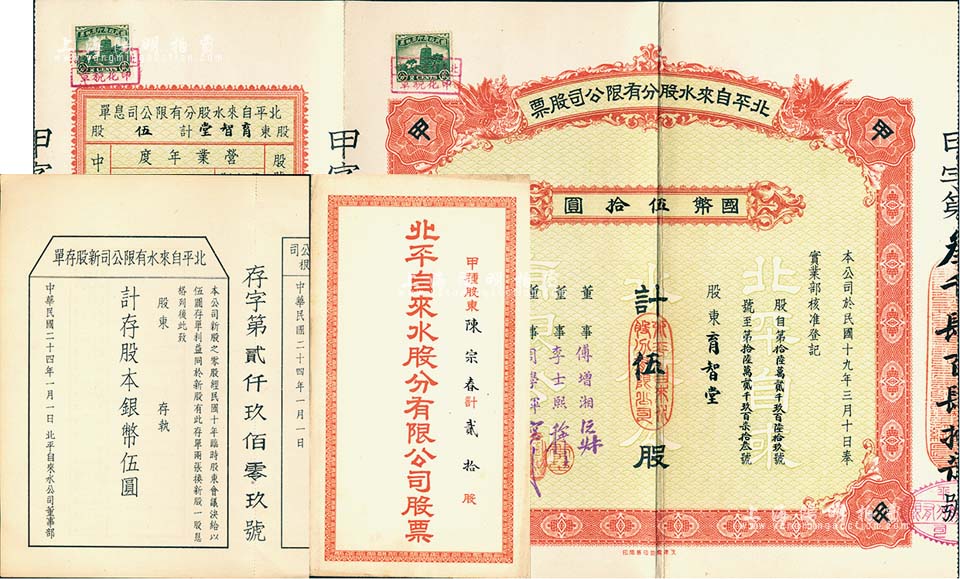 北平自來水股分有限公司股票
甲
甲
國幣伍拾圓
本公司於民國十九年三月十日奉
實業部核准登記
股自第拾陸萬貳千玖百陸拾玖號
號至第拾陸萬貳千玖百柒拾叁號
股東 育智堂
計 伍 股
董事 傅增湘
董事 李士熙
董事
北平自來水股分有限公司息單
股東 育智堂 計 伍 股
營業年度
甲字
甲字
甲字第
北平自來水股分有限公司股票
甲種股東 陳宗春 計 貳拾 股
存字第貳仟玖佰零玖號
中華民國二十四年一月一日
北平自來水有限公司新股存單
本公司新股之零股經民國十年臨時股東會議決給以
伍圓存單利益同於新股有此存單兩張換新股一股息
格列後此致
股東 存執
計存股本銀幣伍圓
中華民國二十四年一月一日 北平自來水公司董事部